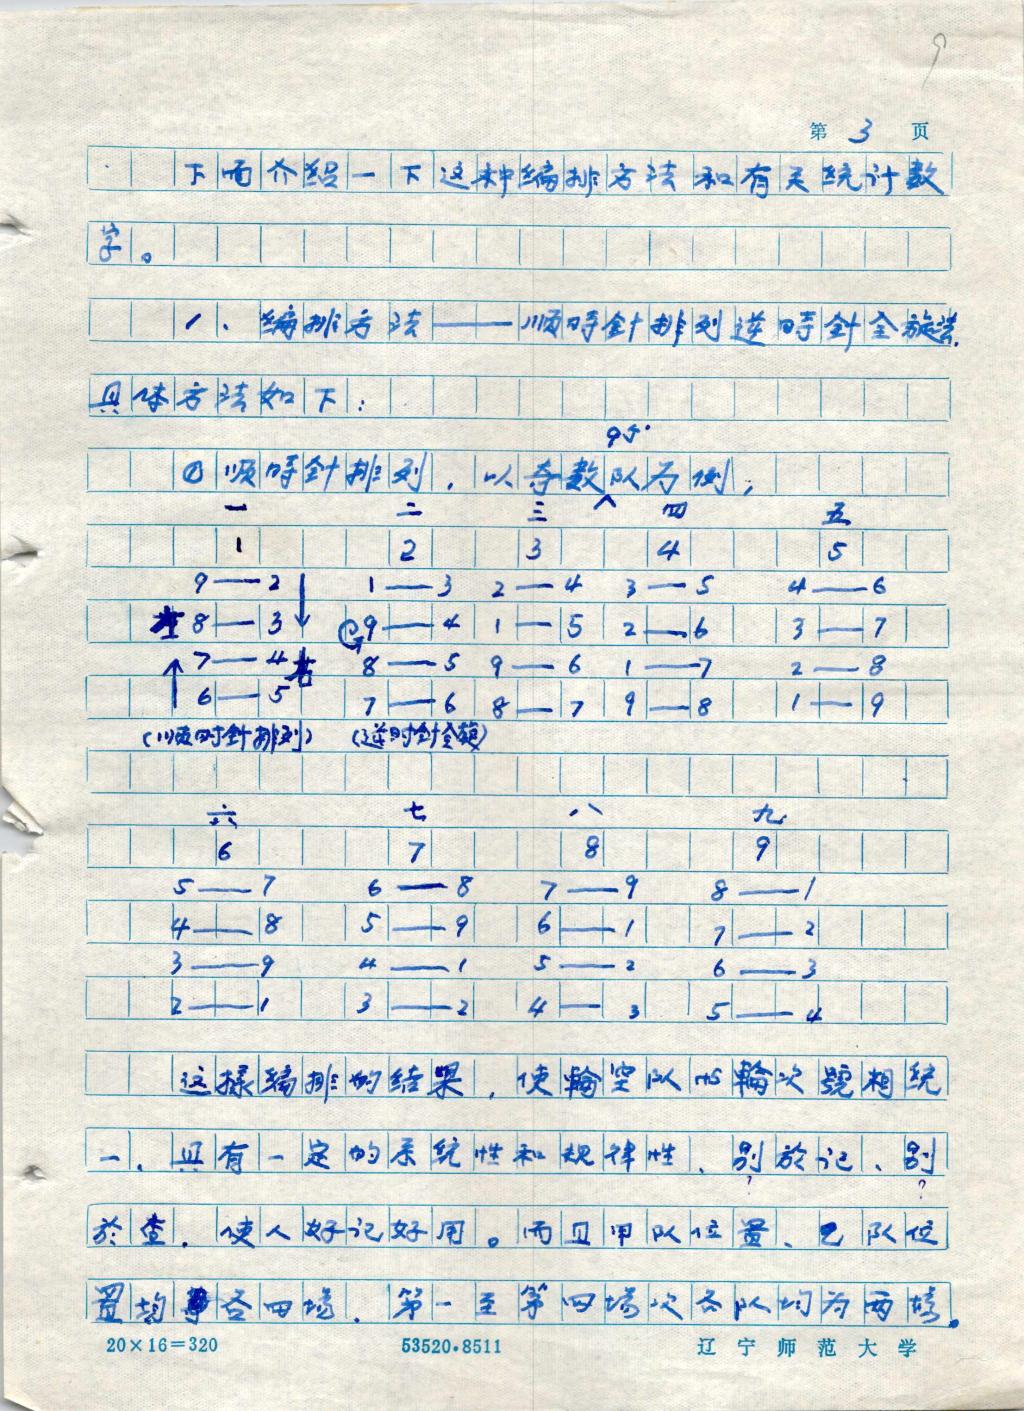 9
第 3 页
下面介绍一下这种编排方法和有关统计数
字。
1、编排方法——顺時針排列逆時針全旋法.
具体方法如下:
9个
①顺時針排列,以奇数队为例,
一 二 三 四 五
1 2 3 4 5
9——2 1——3 2——4 3——5 4——6
8——3 9——4 1——5 2——6 3——7
7——4 8——5 9——6 1——7 2——8
6——5 7——6 8——7 9——8 1——9
(顺时針排列) (逆时針全旋)
六 七 八 九
6 7 8 9
5——7 6——8 7——9 8——1
4——8 5——9 6——1 7——2
3——9 4——1 5——2 6——3
2——1 3——2 4——3 5——4
这様编排的结果,使輪空队与輪次號相统
一、具有一定的系统性和规律性、别於记、别
? ?
於查,使人好记好用。而且甲队位置、乙队位
置均各四場.第一至第四場次各队均为两場.
20×16=320 53520·8511 辽宁师范大学